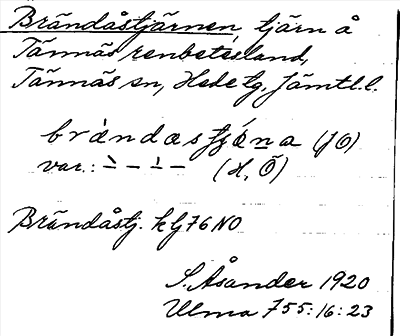 Brändåstjärnen, tjärn å
Tännäs renbetesland,
Tännäs sn, Hede tg, Jämtl.l.
bràndåstjǽna (JO)
var.: – – – – (H, Ö)
Brändåstj. kbj76 NO
S. Åsander 1920
Ulma 755:16:23